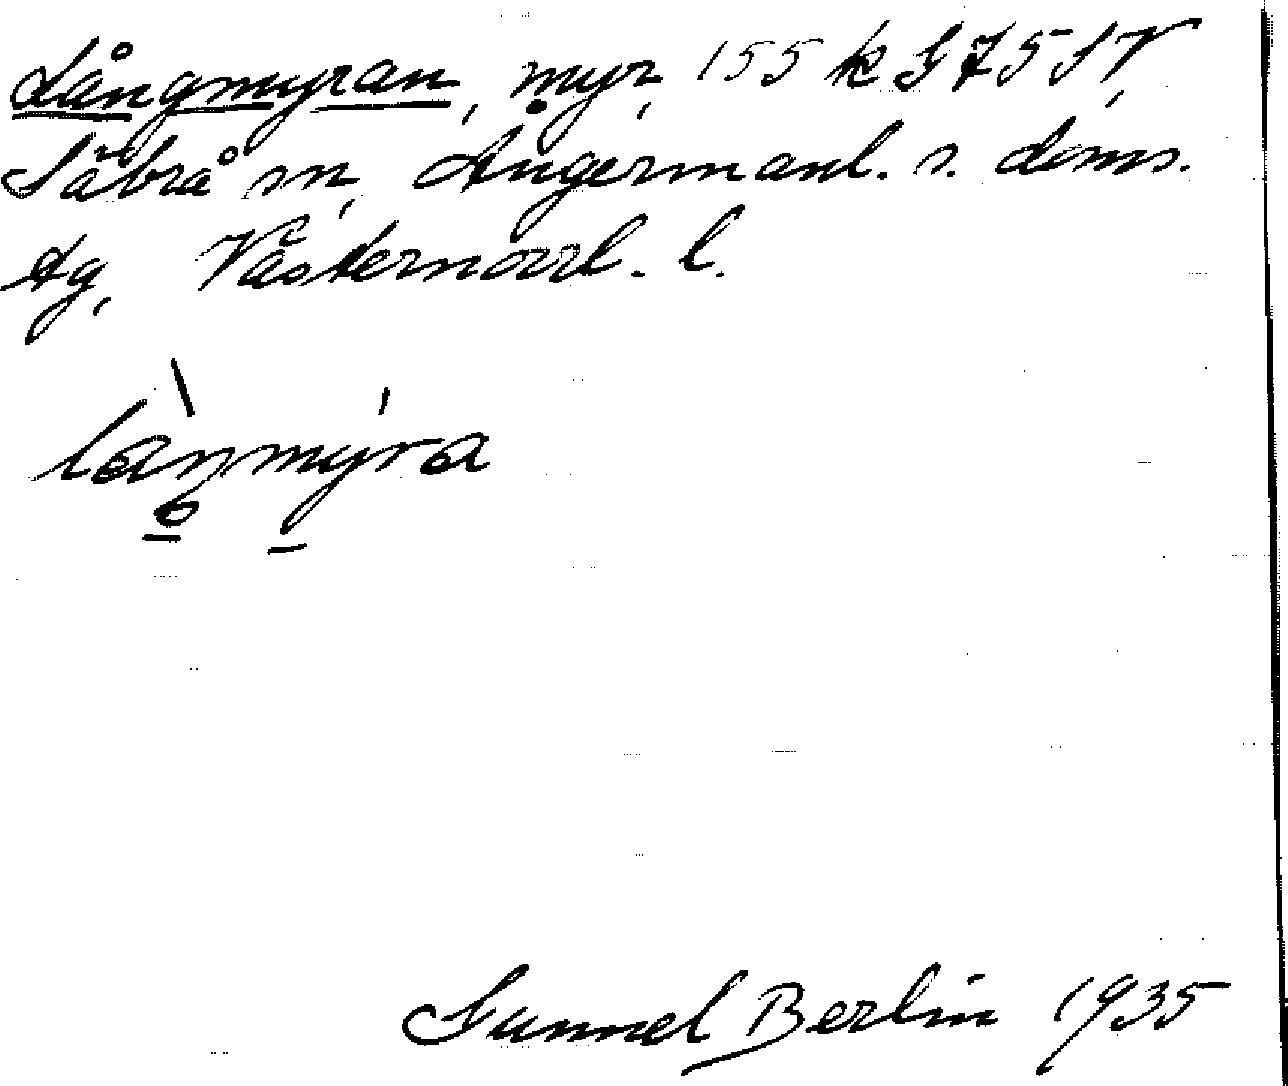 Långmyran, myr, 155 k G 75 SV,
Säbrå sn, Ångermanl. s. doms.
tg, Västernorrl. l.
làŋmýra
Gunnel Berlin 1935